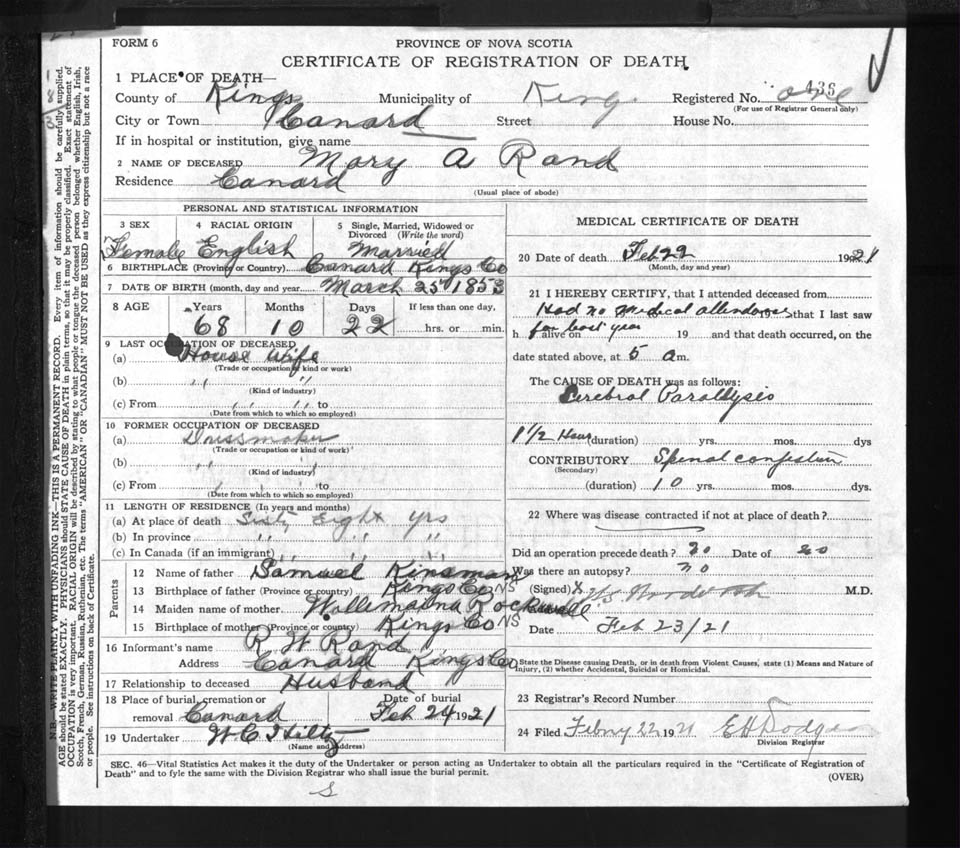 FORM 6
PROVINCE OF NOVA SCOTIA
CERTIFICATE OF REGISTRATION OF DEATH
1 PLACE OF DEATH—
County of Kings Municipality of Kings Registered No. 436 one
(For use of Registrar General only)
City or Town Canard Street House No.
If in hospital or institution, give name
2 NAME OF DECEASED Mary A Rand
Residence Canard
(Usual place of abode)
PERSONAL AND STATISTICAL INFORMATION
3 SEX 4 RACIAL ORIGIN 5 Single, Married, Widowed or Divorced (Write the word)
Female English Married
6 BIRTHPLACE (Province or Country) Canard Kings Co
7 DATE OF BIRTH (month, day and year) March 25th 1853
8 AGE Years Months Days If less than one day,
68 10 22 hrs. or min.
9 LAST OCCUPATION OF DECEASED
(a) House Wife
(Trade or occupation or kind or work)
(b) " "
(Kind of industry)
(c) From " " to
(Date from which to which so employed)
10 FORMER OCCUPATION OF DECEASED
(a) Dressmaker
(Trade or occupation or kind of work)
(b) " "
(Kind of industry)
(c) From " " to
(Date from which to which so employed)
11 LENGTH OF RESIDENCE (In years and months)
(a) At place of death Sixty Eight yrs
(b) In province " " "
(c) In Canada (if an immigrant) " " "
Parents
12 Name of father Samuel Kinsman
13 Birthplace of father (Province or country) Kings Co NS
14 Maiden name of mother Rockwell
15 Birthplace of mother (Province or country) Kings Co NS
16 Informant's name R W Rand
Address Canard Kings Co
17 Relationship to deceased Husband
18 Place of burial, cremation or removal Canard Date of burial Feb 24 1921
19 Undertaker W C Hiltz
(Name and Address)
MEDICAL CERTIFICATE OF DEATH
20 Date of death Feb 22 1921
(Month, day and year)
21 I HEREBY CERTIFY, that I attended deceased from
Had no medical attendance that I last saw
h alive on for last year 19 and that death occurred, on the
date stated above, at 5 a m.
The CAUSE OF DEATH was as follows:
Cerebral Paralysis
1 1/2 Hour (duration) yrs. mos. dys
CONTRIBUTORY Spinal congestion
(Secondary)
(duration) 10 yrs. mos. dys.
22 Where was disease contracted if not at place of death?
Did an operation precede death? no Date of no
Was there an autopsy? no
(Signed) M.D.
Date Feb 23/21
State the Disease causing Death, or in death from Violent Causes, state (1) Means and Nature of
Injury, (2) whether Accidental, Suicidal or Homicidal.
23 Registrar's Record Number
24 Filed Febry 22 1921 E H Dodge
Division Registrar
SEC. 46—Vital Statistics Act makes it the duty of the Undertaker or person acting as Undertaker to obtain all the particulars required in the "Certificate of Registration of
Death" and to fyle the same with the Division Registrar who shall issue the burial permit.
(OVER)
S
N.B.—WRITE PLAINLY WITH UNFADING INK—THIS IS A PERMANENT RECORD. Every item of information should be carefully supplied.
AGE should be stated EXACTLY. PHYSICIANS should STATE CAUSE OF DEATH in plain terms, so that it may be properly classified. Exact statement of
OCCUPATION is very important. RACIAL ORIGIN will be described by stating to what people or tongue the deceased person belonged whether English, Irish,
Scotch, French, German, Russian, Ruthenian, etc. The terms "AMERICAN" OR "CANADIAN" MUST NOT BE USED as they express citizenship but not a race
or people. See instructions on back of Certificate.